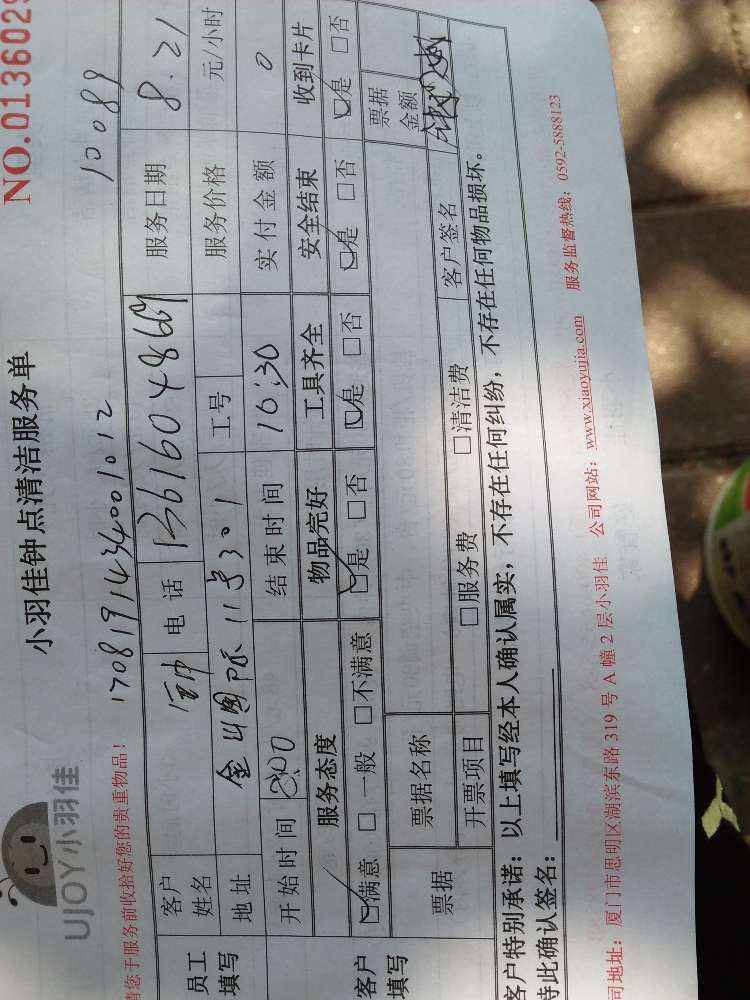 小羽佳钟点清洁服务单
NO.0136029
UJOY小羽佳
请您于服务前收拾好您的贵重物品!
1708191434001012
10089
员工填写
客户姓名 钟 电话 13616048669 服务日期 8.21
地址 金山国际11号301 工号 服务价格 元/小时
开始时间 8:00 结束时间 10:30 实付金额 0
客户填写
服务态度 物品完好 工具齐全 安全结束 收到卡片
☑满意 □一般 □不满意 ☑是 □否 ☑是 □否 ☑是 □否 ☑是 □否
票据 票据名称 票据金额
开票项目 □服务费 □清洁费 客户签名
客户特别承诺:以上填写经本人确认属实,不存在任何纠纷,不存在任何物品损坏。
特此确认签名:
司地址:厦门市思明区湖滨东路319号A幢2层小羽佳 公司网站:www.xiaoyujia.com 服务监督热线:0592-5888123